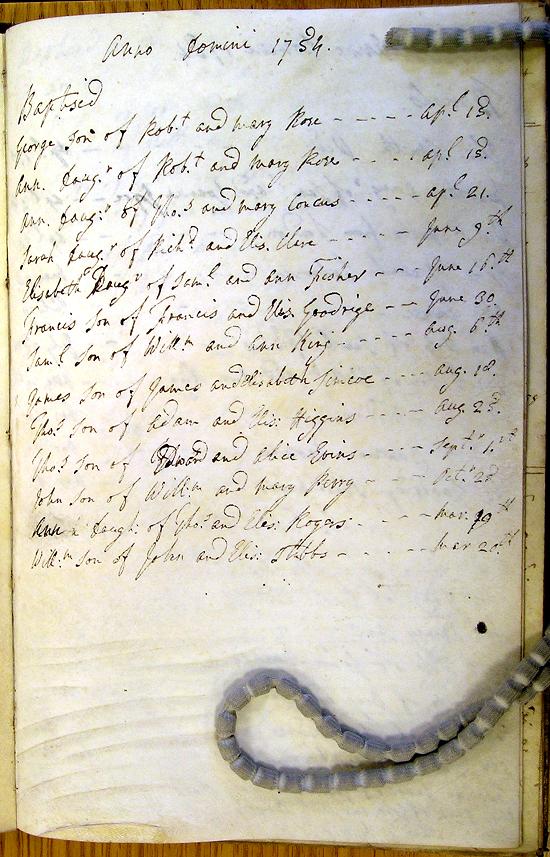 Anno Domini 1734.
Baptised
George son of Robt and mary Rose - - - - - apl 13.
Ann. Daugr of Robt and Mary Rose - - - - - apl 13.
Ann. Daugr of Thos and mary - - - - - apl 21.
Sarah Daugr of Richd and Elis. Clere - - - - - June 9th
Elisabeth Daugr of Saml and ann Fisher - - - June 16th
Francis son of Francis and Elis: Goodrige - - June 30
Saml son of Willm and ann King - - - - aug. 6th
James son of James and Elisabeth Simcoe - - - - aug. 18.
Thos son of Adam and Elis: Higgins - - - - aug 25.
Thos son of Edward and Alice Evins - - - - Septr 1st
John son of Willm and mary Perry - - - - Octr
Ann Daugh: of Thos and Eles: Rogers - - - - mar. 19th
Will:m son of John and Elis: Stibbs - - - - mar 20th